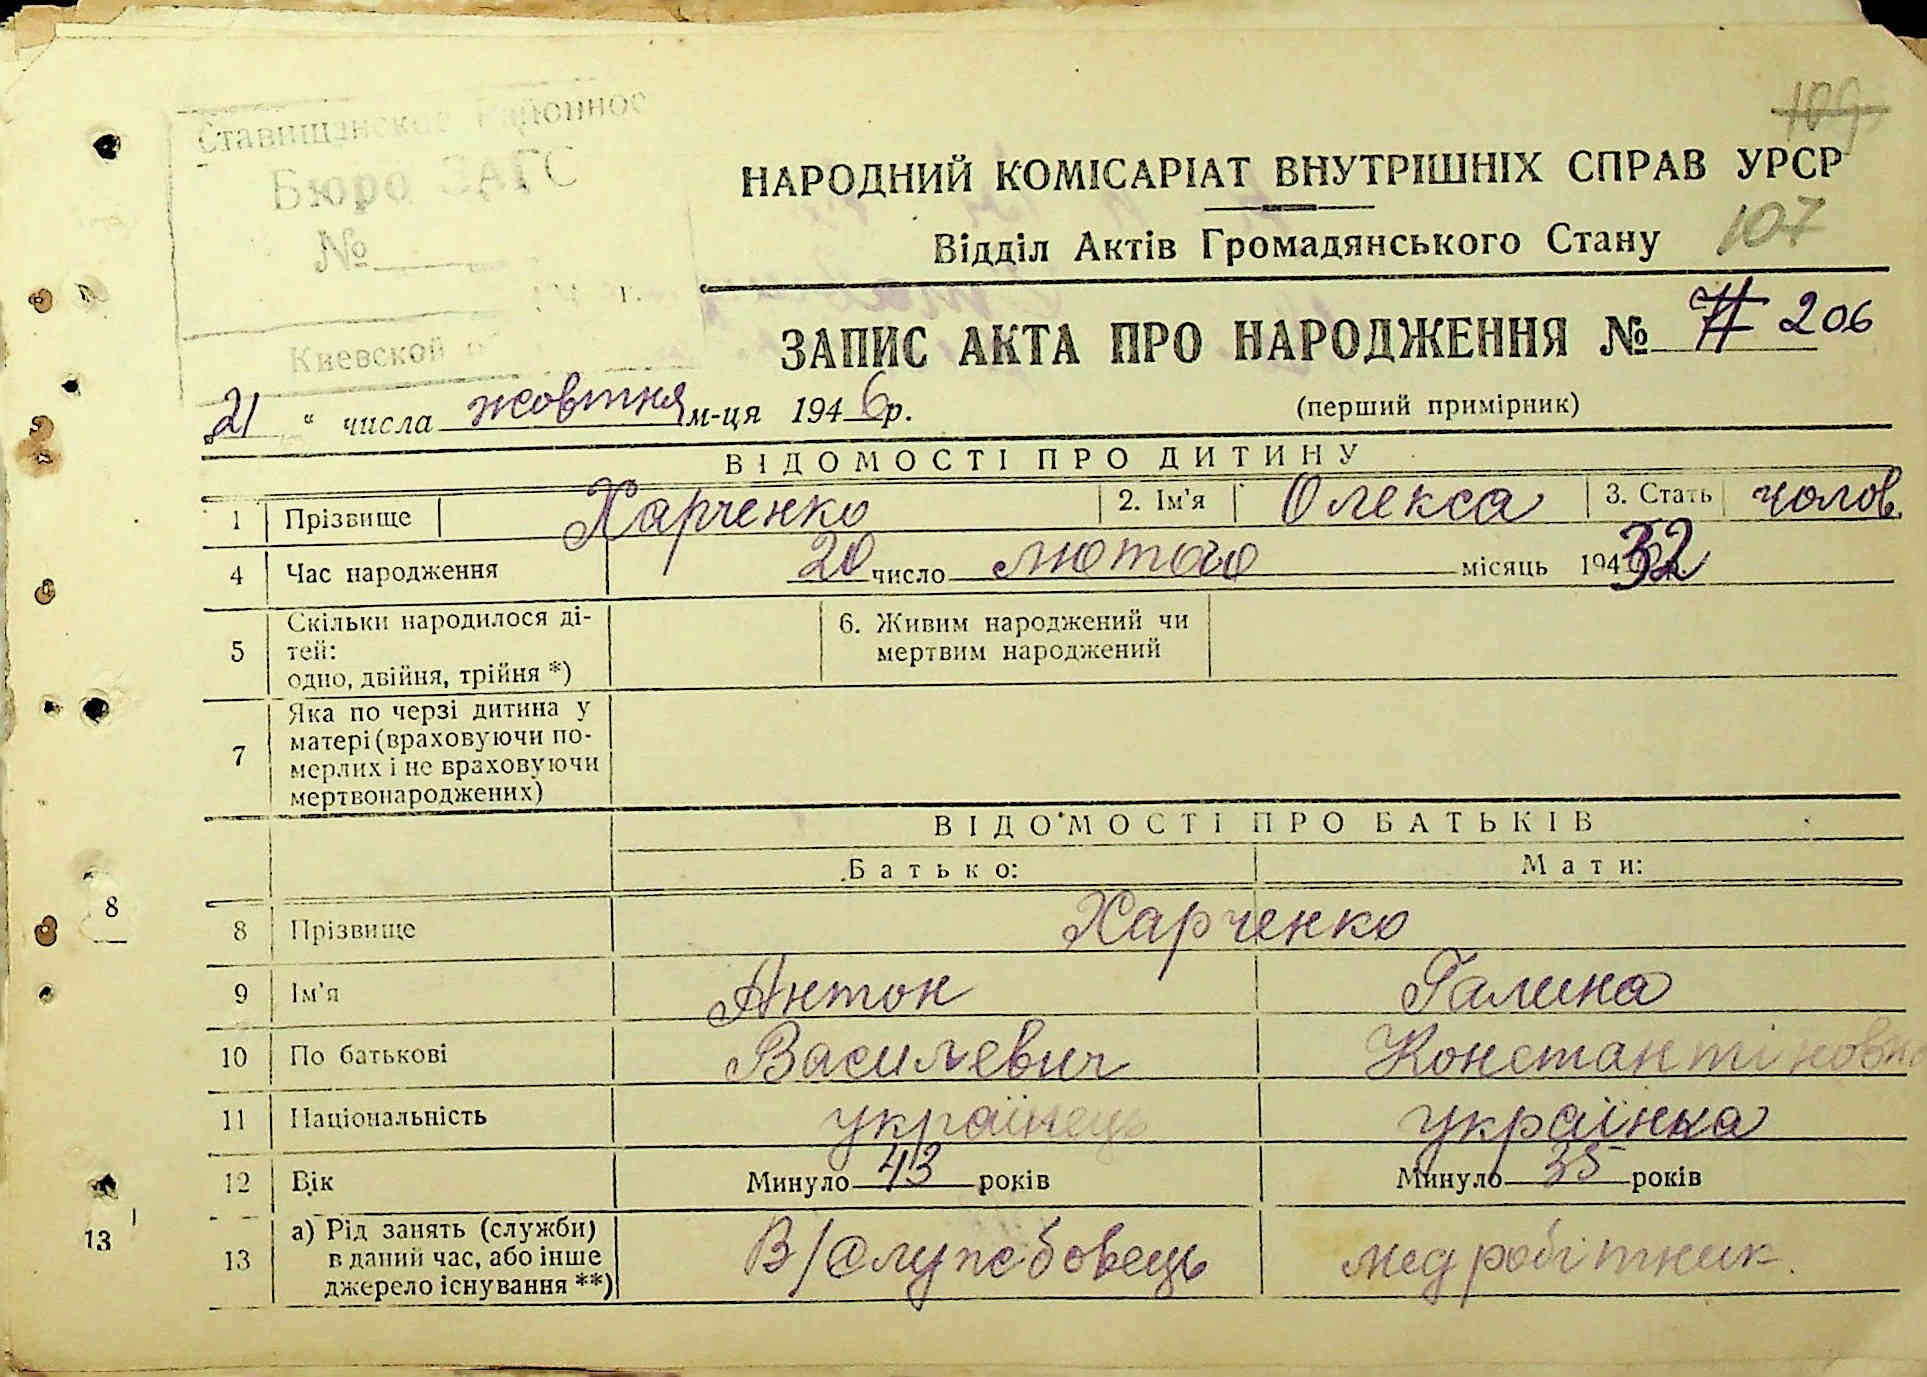 109
Ставищанское Районное
Бюро ЗАГС
№
Киевской
НАРОДНИЙ КОМІСАРІАТ ВНУТРІШНІХ СПРАВ УРСР
Відділ Актів Громадянського Стану 107
ЗАПИС АКТА ПРО НАРОДЖЕННЯ № 206
21 " числа жовтня м-ця 1946 р.
(перший примірник)
ВІДОМОСТІ ПРО ДИТИНУ
1 Прізвище Харченко 2. Ім'я Олекса 3. Стать чолов.
4 Час народження 20 число лютого місяць 194 32
5 Скільки народилося ді-
тей:
одно, двійня, трійня *)
6. Живим народжений чи
мертвим народжений
7 Яка по черзі дитина у
матері (враховуючи по-
мерлих і не враховуючи
мертвонароджених)
ВІДОМОСТІ ПРО БАТЬКІВ
Батько: Мати:
8
8 Прізвище Харченко
9 Ім'я Антон Галина
10 По батькові Васильевич Константіновна
11 Національність українець українка
12 Вік Минуло 43 років Минуло 35 років
13
13 а) Рід занять (служби)
в даний час, або інше
джерело існування **)
В/службовець медробітник.